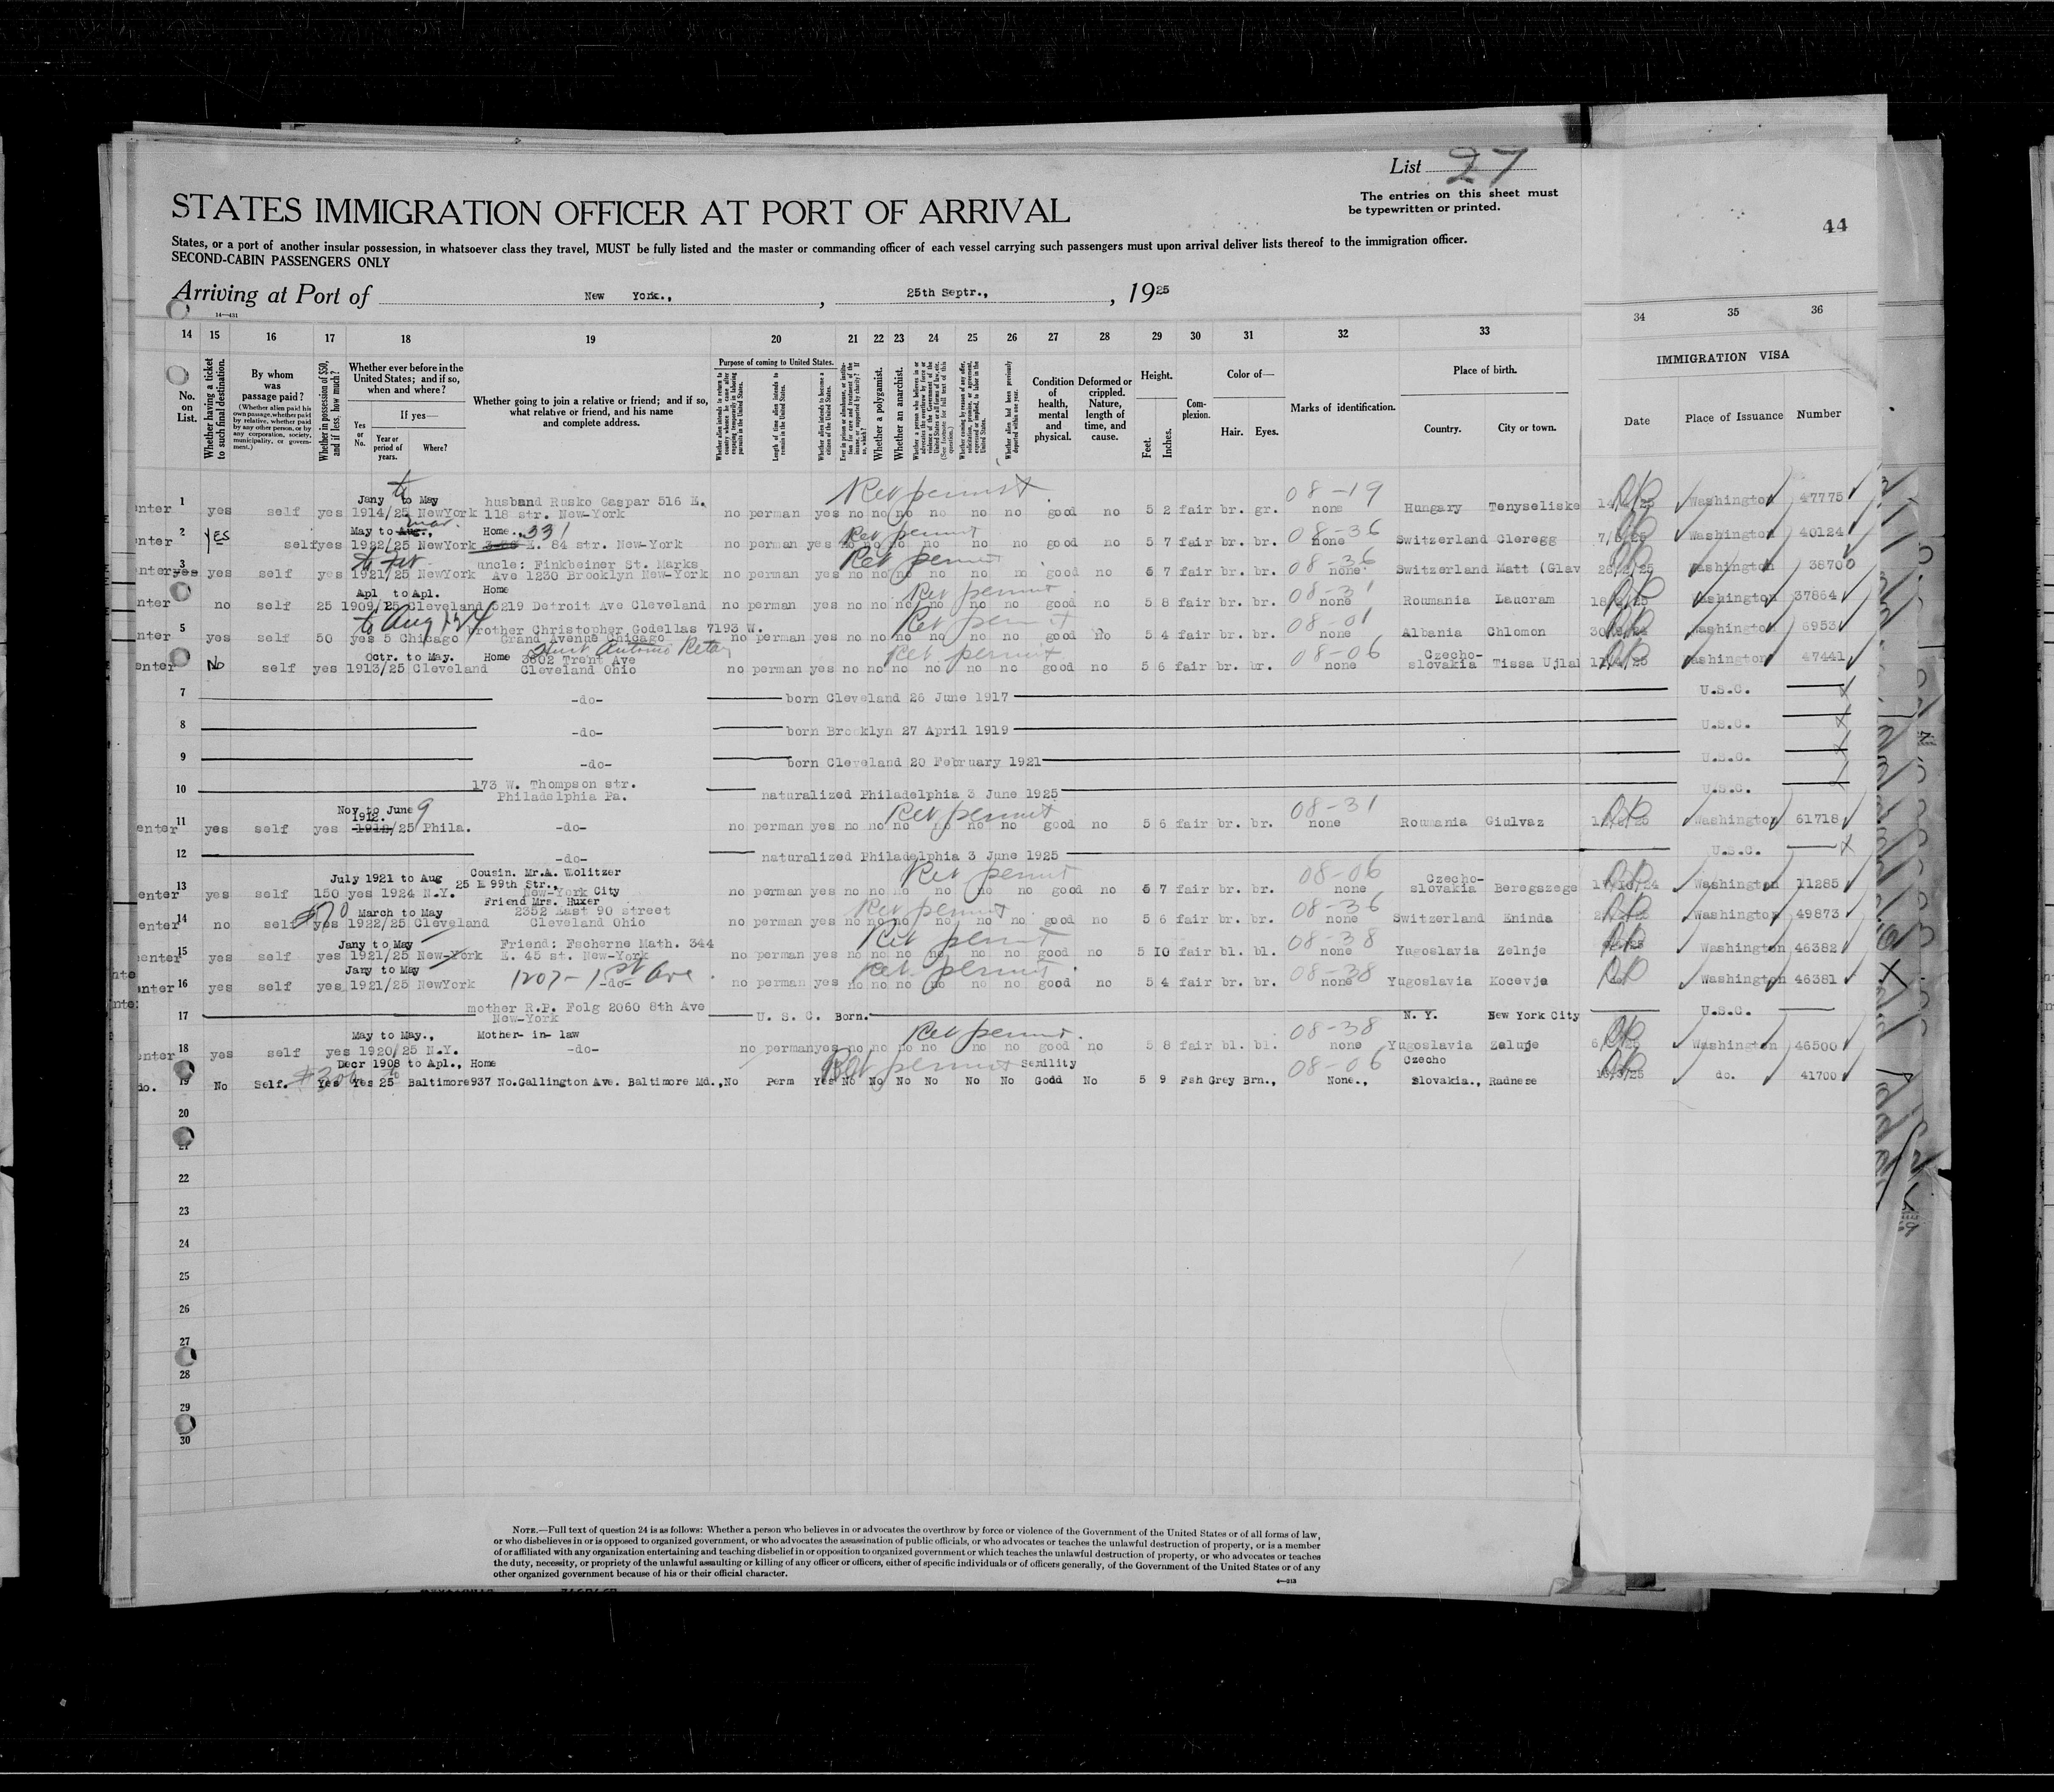 List 27
The entries on this sheet must
be typewritten or printed.
44
STATES IMMIGRATION OFFICER AT PORT OF ARRIVAL
States, or a port of another insular possession, in whatsoever class they travel, MUST be fully listed and the master or commanding officer of each vessel carrying such passengers must upon arrival deliver lists thereof to the immigration officer.
SECOND-CABIN PASSENGERS ONLY
Arriving at Port of New York., , 25th Septr., , 1925
14—431
14 15 16 17 18 19 20 21 22 23 24 25 26 27 28 29 30 31 32 33 34 35 36
No. on List.
Whether having a ticket to such final destination.
By whom was passage paid?
(Whether alien paid his own passage, whether paid by relative, whether paid by any other person, or by any corporation, society, municipality, or government.)
Whether in possession of $50, and if less, how much?
Whether ever before in the United States; and if so, when and where?
If yes—
Yes or No.
Year or period of years.
Where?
Whether going to join a relative or friend; and if so, what relative or friend, and his name and complete address.
Purpose of coming to United States.
Length of time alien intends to remain in the United States.
Whether alien intends to become a citizen of the United States.
Whether a polygamist.
Whether an anarchist.
Condition of health, mental and physical.
Deformed or crippled. Nature, length of time, and cause.
Height.
Feet.
Inches.
Complexion.
Color of—
Hair.
Eyes.
Marks of identification.
Place of birth.
Country.
City or town.
IMMIGRATION VISA
Date
Place of Issuance
Number
Jany to May husband Rusko Gaspar 516 E. Ret permit 08-19
enter 1 yes self yes 1914/25 NewYork 118 str. New-York no perman yes no no no no no no good no 5 2 fair br. gr. none Hungary Tenyseliske Washington 47775
May to Aug., mar. Home., 331 Ret permit 08-36
enter 2 YES self yes 1922/25 NewYork E. 84 str. New-York no perman yes no no no no no no good no 5 7 fair br. br. none Switzerland Cleregg Washington 40124
to Fet uncle: Finkbeiner St. Marks Ret permit 08-36
enter yes 3 yes self yes 1921/25 NewYork Ave 1230 Brooklyn New-York no perman yes no no no no no good no 5 7 fair br. br. none Switzerland Matt (Glav Washington 38700
Apl to Apl. Home Ret permit 08-31
enter no self 25 1909/25 Cleveland 5219 Detroit Ave Cleveland no perman yes no no no no no no good no 5 8 fair br. br. none Roumania Laucram Washington 37864
to Aug 1924 brother Christopher Godellas 7193 W. Ret permit 08-01
enter 5 yes self 50 yes 5 Chicago Grand Avenue Chicago no perman yes no no no no no no good no 5 4 fair br. br. none Albania Chlomon Washington 6953
Octr. to May. Home 3802 Trent Ave Ret permit 08-06 Czecho-
enter No self yes 1913/25 Cleveland Cleveland Ohio no perman yes no no no no no no good no 5 6 fair br. br. none slovakia Tissa Ujlal Washington 47441
7 -do- born Cleveland 26 June 1917 U.S.C.
8 -do- born Brooklyn 27 April 1919 U.S.C.
9 -do- born Cleveland 20 February 1921 U.S.C.
173 W. Thompson str.
10 Philadelphia Pa. naturalized Philadelphia 3 June 1925 U.S.C.
Nov to June 9 1912. Ret permit 08-31
enter 11 yes self yes /25 Phila. -do- no perman yes no no no no no no good no 5 6 fair br. br. none Roumania Giulvaz Washington 61718
12 -do- naturalized Philadelphia 3 June 1925 U.S.C.
July 1921 to Aug Cousin. Mr.A. Wolitzer 25 E 99th Str., Ret permit 08-06 Czecho-
enter 13 yes self 150 yes 1924 N.Y. New-York City no perman yes no no no no no no good no 5 7 fair br. br. none slovakia Beregszege Washington 11285
Friend Mrs. Huxer
$70 March to May 2352 East 90 street Ret permit 08-36
enter 14 no self yes 1922/25 Cleveland Cleveland Ohio no perman yes no no no no no no good no 5 6 fair br. br. none Switzerland Eninda Washington 49873
Jany to May Friend: Fscherne Math. 344 Ret permit 08-38
enter 15 yes self yes 1921/25 New-York E. 45 st. New-York no perman yes no no no no no no good no 5 10 fair bl. bl. none Yugoslavia Zelnje Washington 46382
Jany to May 1207 - 1st Ave Ret. permit 08-38
enter 16 yes self yes 1921/25 NewYork -do- no perman yes no no no no no no good no 5 4 fair br. br. none Yugoslavia Kocevje Washington 46381
mother R.P. Folg 2060 8th Ave
17 New-York U. S. C. Born. N. Y. New York City U.S.C.
May to May., Mother- in- law Ret permit. 08-38
enter 18 yes self yes 1920/25 N.Y. -do- no perman yes no no no no no no good no 5 8 fair bl. bl. none Yugoslavia Zelunje Washington 46500
Decr 1908 to Apl., Home Ret permit Senility 08-06 Czecho
do. 19 No Self. Yes Yes 25 Baltimore 937 No.Gallington Ave. Baltimore Md., No Perm Yes No No No No No No Godd No 5 9 Fsh Grey Brn., None., Slovakia., Radnese do. 41700
20
21
22
23
24
25
26
27
28
29
30
NOTE.—Full text of question 24 is as follows: Whether a person who believes in or advocates the overthrow by force or violence of the Government of the United States or of all forms of law,
or who disbelieves in or is opposed to organized government, or who advocates the assassination of public officials, or who advocates or teaches the unlawful destruction of property, or is a member
of or affiliated with any organization entertaining and teaching disbelief in or opposition to organized government or which teaches the unlawful destruction of property, or who advocates or teaches
the duty, necessity, or propriety of the unlawful assaulting or killing of any officer or officers, either of specific individuals or of officers generally, of the Government of the United States or of any
other organized government because of his or their official character.
4—213